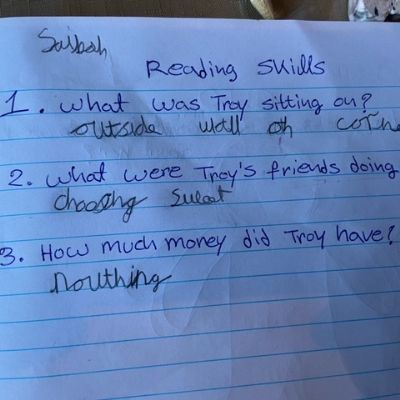 Saibash
Reading Skills
1. What was Troy sitting on?
outside wall oh corne
2. What were Troy's friends doing
choosing sweet
3. How much money did Troy have?
Nouthing